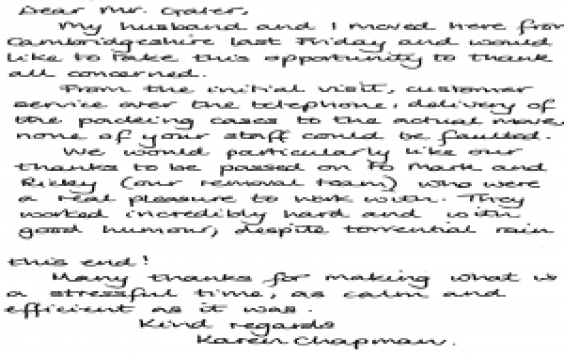 Dear Mr. Crater,
My husband and I moved here from
Cambridgeshire last Friday and would
like to take this opportunity to thank
all concerned.
From the initial visit, customer
service over the telephone, delivery of
the packing cases to the actual move,
none of your staff could be faulted.
We would particularly like our
thanks to be passed on to Mark and
Ricky (our removal team) who were
a real pleasure to work with. They
worked incredibly hard and with
good humour, despite torrential rain
this end!
Many thanks for making what is
a stressful time, as calm and
efficient as it was.
Kind regards
Karen Chapman.